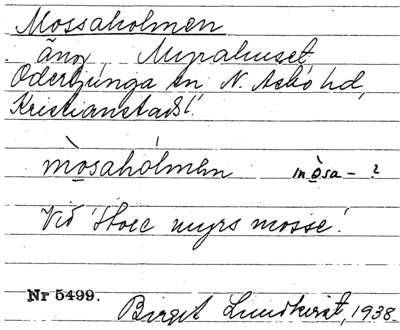 Mossaholmen
äng, Myrahuset,
Oderljunga sn N. Åsbo hd,
Kristianstads l.
mòsahólmen mòsa- ?
Vid 'Store myrs mosse'.
Nr 5499.
Birgit Lundkvist, 1938